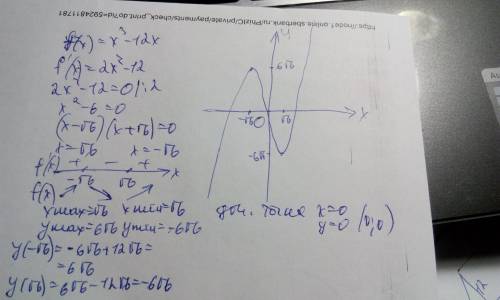 https://node1.online.sberbank.ru/PhizIC/private/payments/check_print.do?id=5924811781
f(x) = x³ - 12x
f'(x) = 2x² - 12
2x² - 12 = 0 /:2
x² - 6 = 0
(x - √6)(x + √6) = 0
x = √6 x = -√6
f'(x) + - + x
-√6 √6
f(x)
x max = √6 x min = √6
y max = 6√6 y min = -6√6
y(-√6) = -6√6 + 12√6 =
= 6√6
y(√6) = 6√6 - 12√6 = -6√6
y
x
0
√6
доп. точка x = 0
y = 0 (0;0)